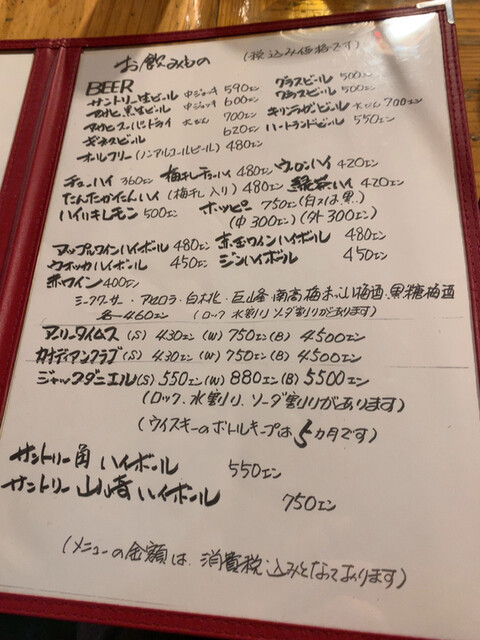 お飲みもの (税込み価格です)
BEER
サントリー生ビール 中ジョッキ 590エン グラスビール 500エン
アサヒ黒生ビール 中ジョッキ 600エン グラスビール 500エン
アサヒスーパードライ 大びん 700エン キリンラガービール 大びん 700エン
ギネスビール 620エン ハートランドビール 550エン
オールフリー(ノンアルコールビール) 480エン
チューハイ 360エン 梅干しチューハイ 480エン ウーロンハイ 420エン
たんたかたんハイ(梅干し入り) 480エン 緑茶ハイ 420エン
ハイリキレモン 500エン ホッピー 750エン(白又は黒)
(中300エン)(外300エン)
アップルワインハイボール 480エン 赤玉ワインハイボール 480エン
ウオッカハイボール 450エン ジンハイボール 450エン
赤ワイン 400エン
シークワーサー・アセロラ・白桃・巨峰・南高梅・あっぷる梅酒・黒糖梅酒
各460エン (ロック 水割り ソーダ割りがあります)
アーリータイムス (S) 430エン (W) 750エン (B) 4500エン
カナディアンクラブ (S) 430エン (W) 750エン (B) 4500エン
ジャックダニエル (S) 550エン (W) 880エン (B) 5500エン
(ロック、水割り、ソーダ割りがあります)
(ウイスキーのボトルキープは5カ月です)
サントリー角ハイボール 550エン
サントリー山崎ハイボール 750エン
(メニューの金額は、消費税込みとなっております)